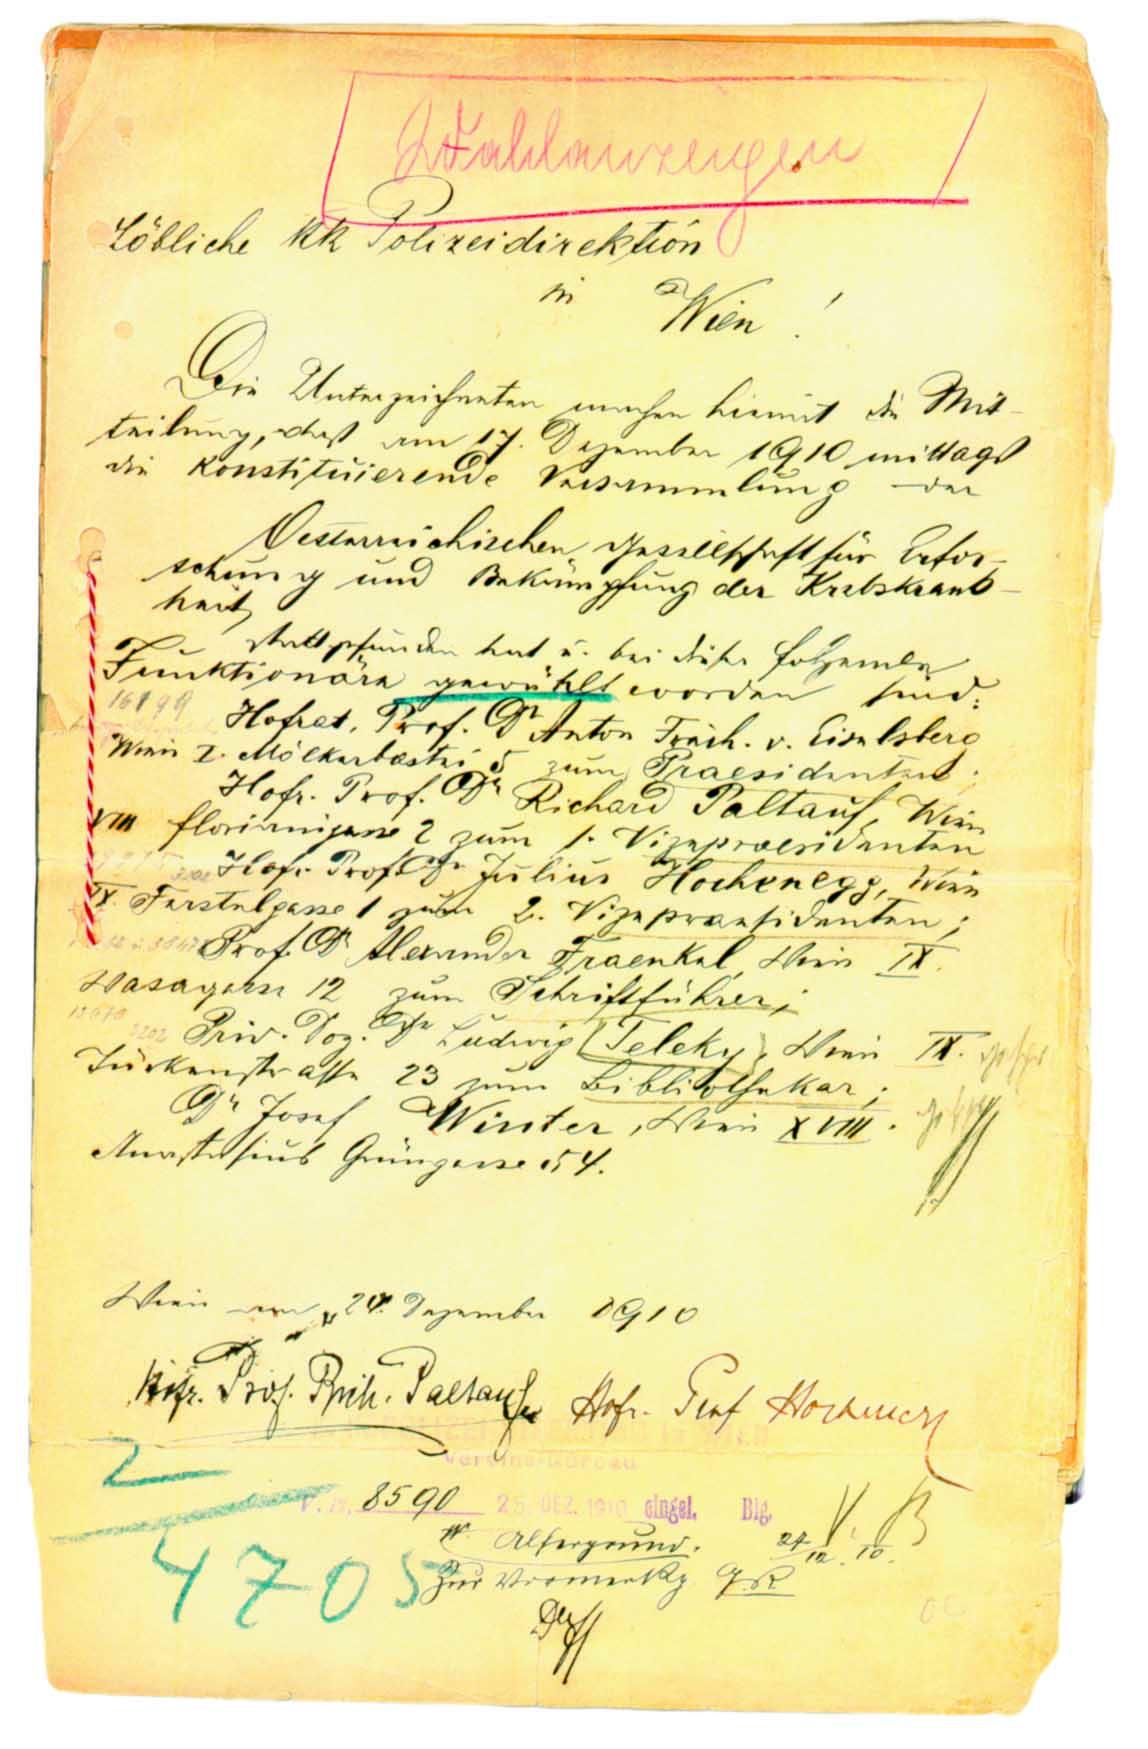 Wahlanzeigen
Löbliche kk Polizeidirektion
in Wien!
Die Unterzeichneten machen hiemit die Mit-
teilung, daß am 17. Dezember 1910 mittags
die konstituierende Versammlung der
Oesterreichischen Gesellschaft für Erfor-
schung und Bekämpfung der Krebskrank-
heit,
stattgefunden hat u. bei dieser folgende
Funktionäre gewählt worden sind:
Hofrat, Prof. Dr Anton Freih. v. Eiselsberg
Wien I. Mölkerbastei 5 zum Praesidenten;
Hofr. Prof. Dr Richard Paltauf, Wien
VIII Floriangasse 2 zum 1. Vizepraesidenten
Hofr. Prof. Dr Julius Hochenegg, Wien
IX. Ferstelgasse 1 zum 2. Vizepraesidenten;
Prof. Dr Alexander Fraenkel, Wien IX.
Wasagasse 12 zum Schriftführer;
Priv. Doz. Dr Ludwig Teleky, Wien IX.
Türkenstrasse 23 zum Bibliothekar;
Dr Josef Winter, Wien XVIII.
Anastasius Grüngasse 54.
Wien am 24. Dezember 1910
Hofr. Prof. Rich. Paltauf Hofr. Prof Hochenegg
Vereins-Bureau
V. Z. 8590 25. DEZ. 1910 eingel. Blg.
Alsergrund.
27/12. 10.
Zur Vormerkg
4705